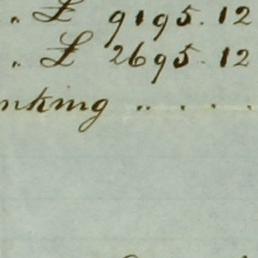 " £ 9195.12
" £ 2695.12
nking " . . .